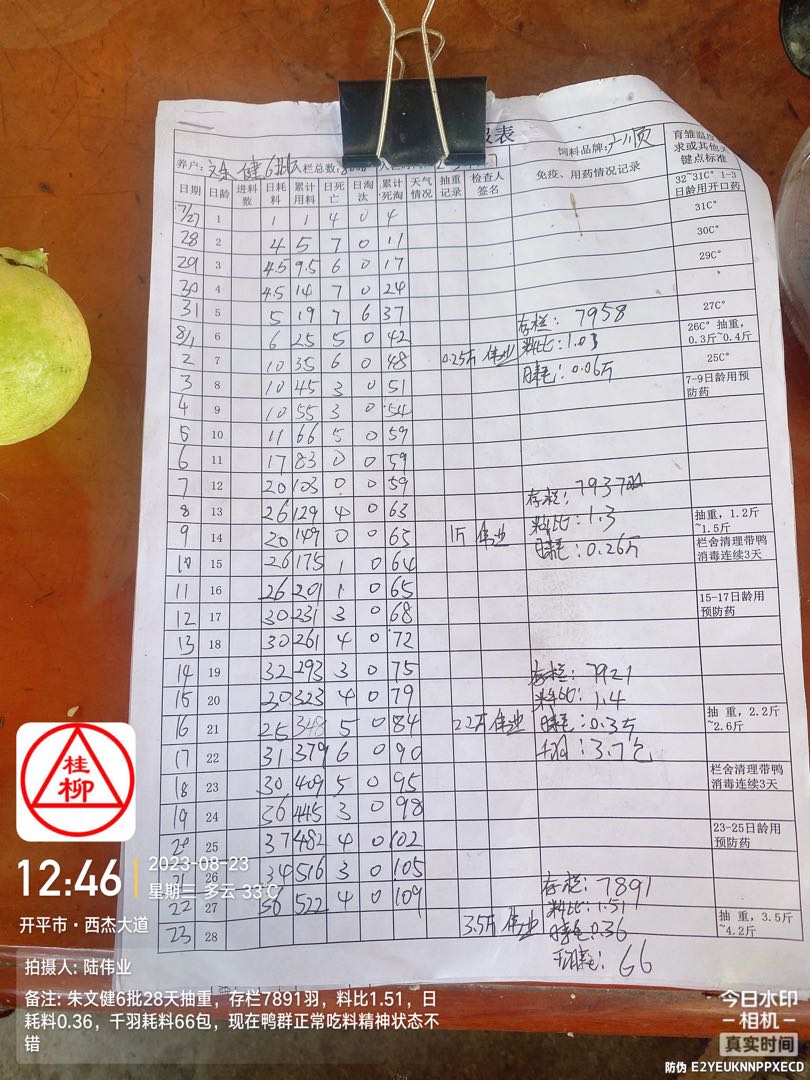 报表
养户: 文健6批 栏总数: 饲料品牌: 川顺 育雏温度
求或其他关
键点标准
日期 日龄 进料数 日耗料 累计用料 日死亡 日淘汰 累计死淘 天气情况 抽重记录 检查人签名 免疫、用药情况记录
7/27 1 1 1 4 0 4 32~31C° 1-3日龄用开口药
28 2 4 5 7 0 11 31C°
29 3 4.5 9.5 6 0 17 30C°
30 4 4.5 14 7 0 24 29C°
31 5 5 19 7 6 37 存栏: 7958 27C°
8/1 6 6 25 5 0 42 料比:1.03 26C° 抽重,0.3斤~0.4斤
2 7 10 35 6 0 48 0.25斤 伟业 日耗:0.06斤 25C°
3 8 10 45 3 0 51 7-9日龄用预防药
4 9 10 55 3 0 54
5 10 11 66 5 0 59
6 11 17 83 0 0 59
7 12 20 103 0 0 59 存栏: 7937
8 13 26 129 4 0 63 料比:1.3 抽重,1.2斤~1.5斤
9 14 20 149 0 0 63 1斤 伟业 日耗:0.26斤 栏舍清理带鸭消毒连续3天
10 15 26 175 1 0 64
11 16 26 201 1 0 65 15-17日龄用预防药
12 17 30 231 3 0 68
13 18 30 261 4 0 72
14 19 32 293 3 0 75 存栏: 7921
15 20 30 323 4 0 79 料比:1.4
16 21 25 348 5 0 84 2.2斤 伟业 日耗:0.3斤 抽 重,2.2斤~2.6斤
17 22 31 379 6 0 90 千羽:3.7包
18 23 30 409 5 0 95 栏舍清理带鸭消毒连续3天
19 24 36 445 3 0 98
20 25 37 482 4 0 102 23-25日龄用预防药
21 26 34 516 3 0 105
22 27 36 522 4 0 109 存栏: 7891
料比:1.51
23 28 3.5斤 伟业 日耗0.36 抽 重,3.5斤~4.2斤
千羽耗: 66
桂
柳
12:46 2023-08-23
星期三 多云 33℃
开平市·西杰大道
拍摄人: 陆伟业
备注: 朱文健6批28天抽重,存栏7891羽,料比1.51,日
耗料0.36,千羽耗料66包,现在鸭群正常吃料精神状态不
错
今日水印
相机
真实时间
防伪 E2YEUKNNPPXECD